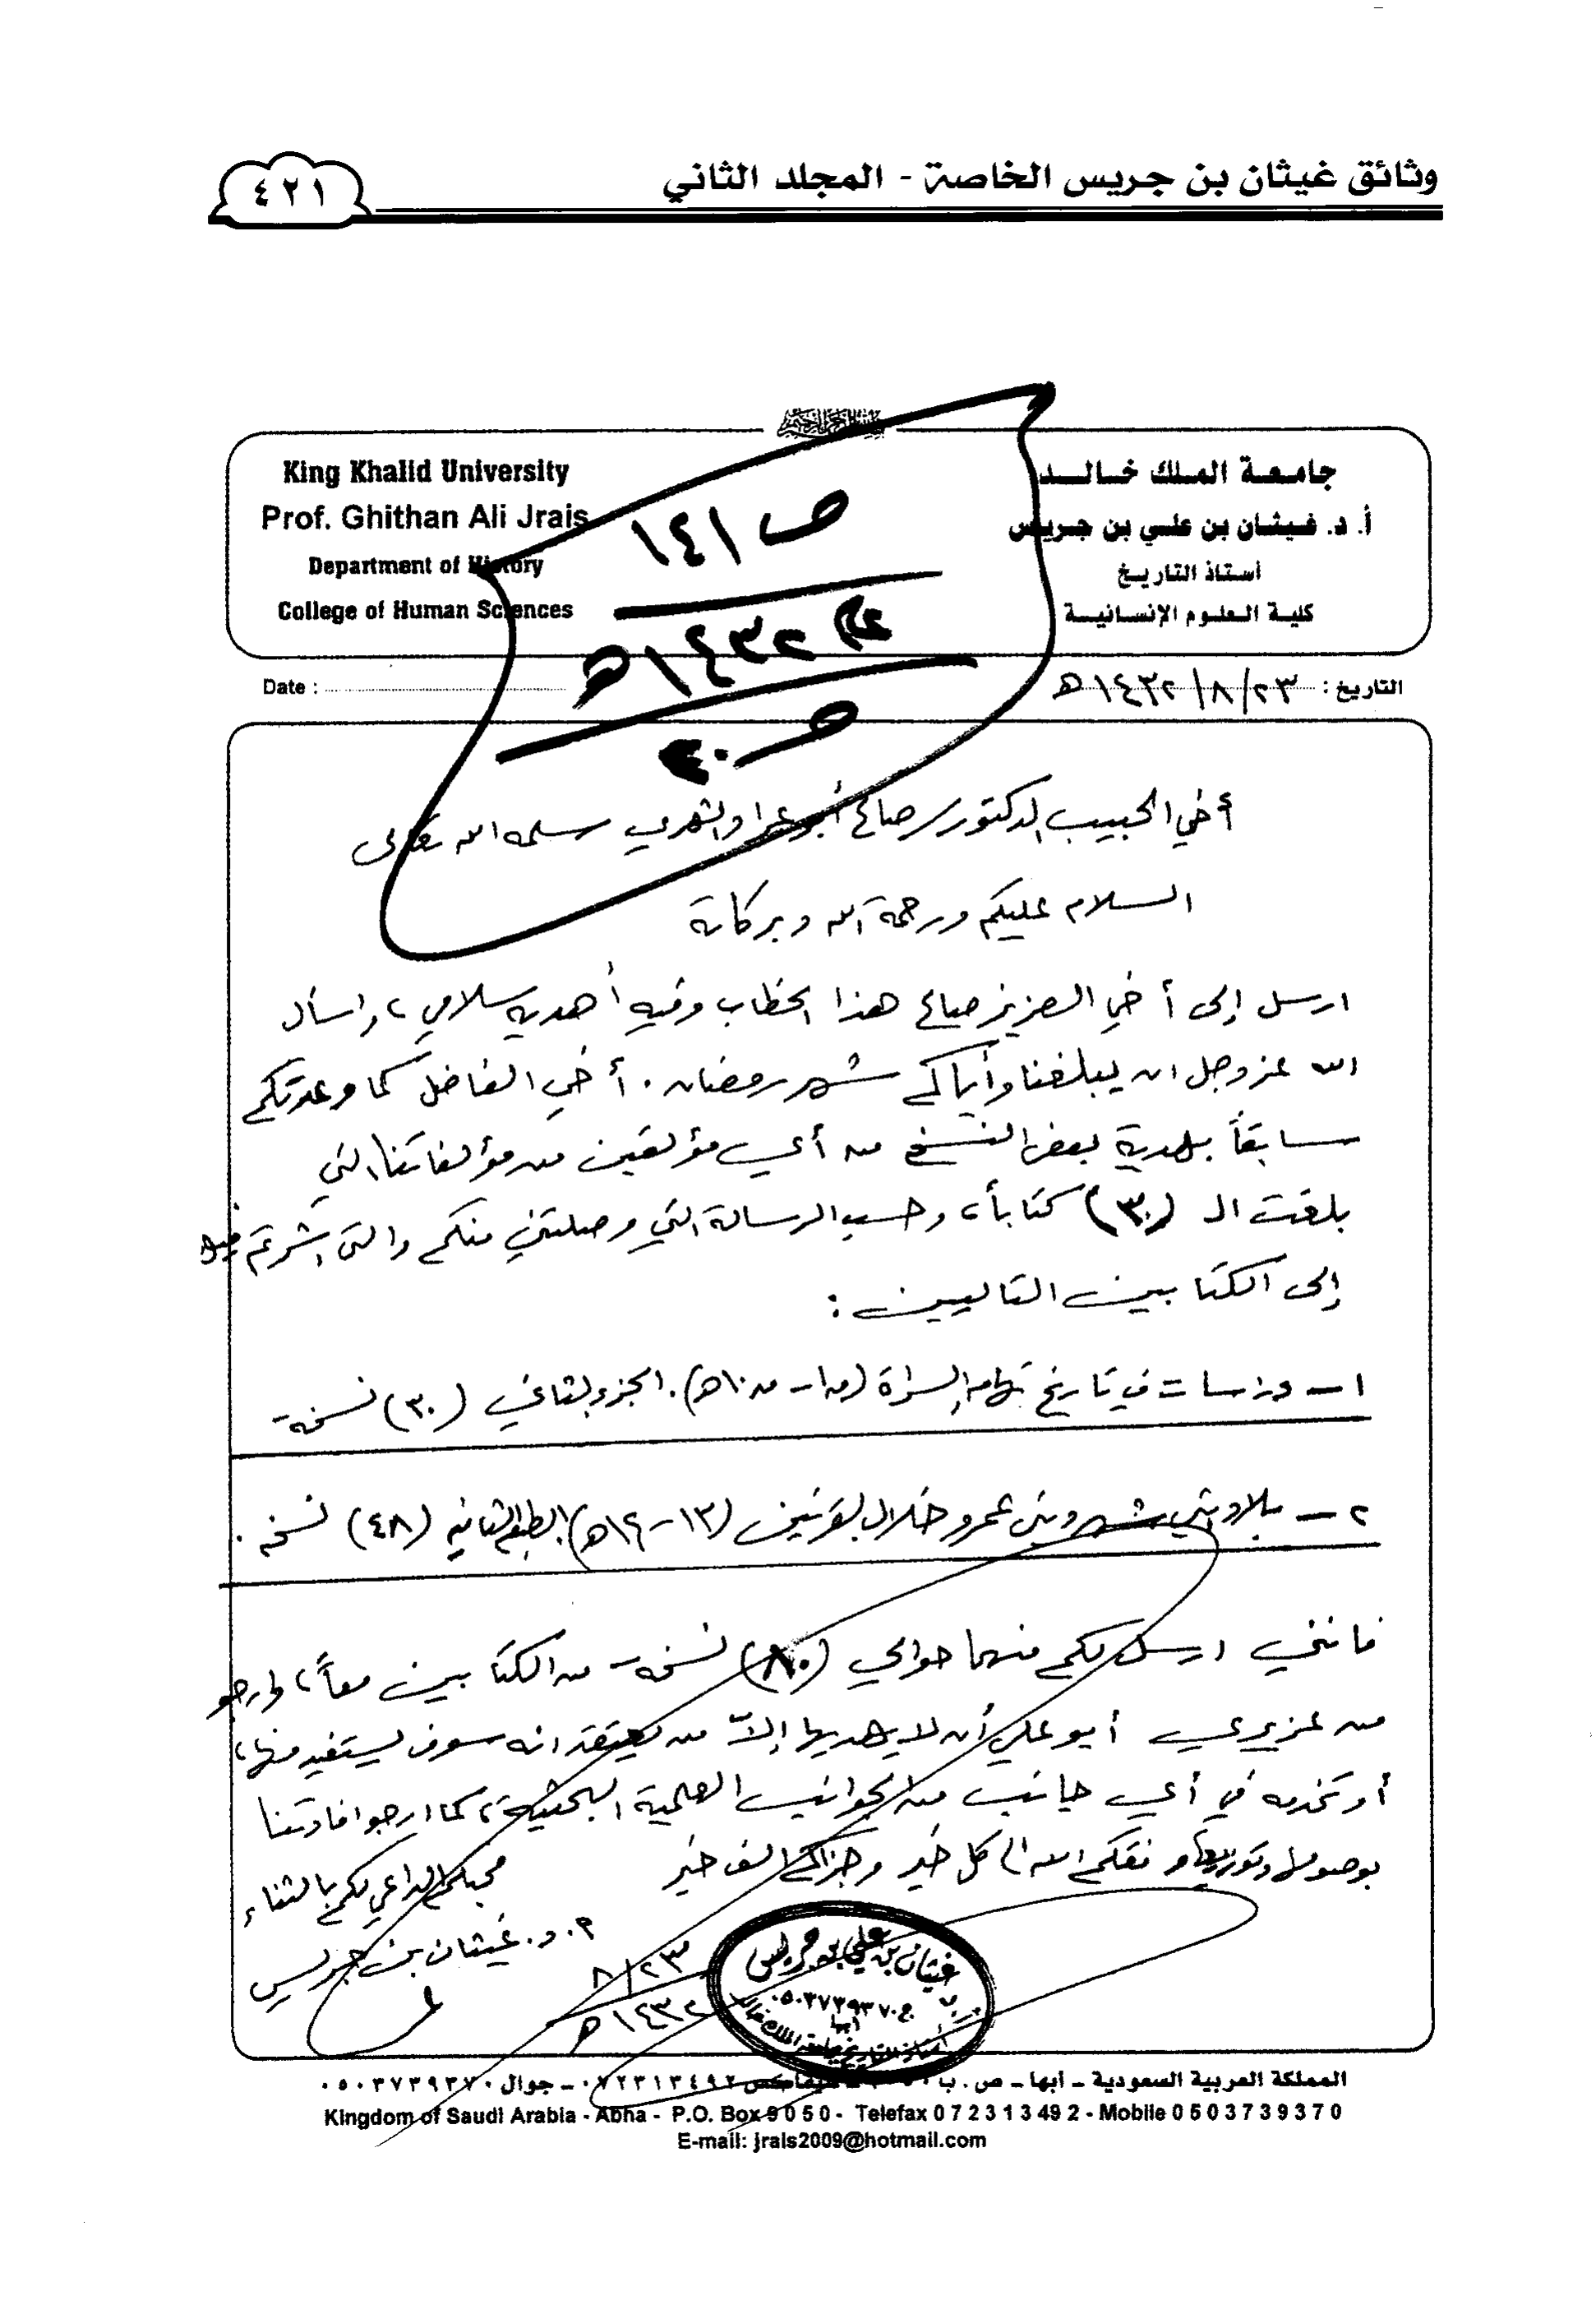 وثائق غيثان بن جريس الخاصة - المجلد الثاني
٤٢١
King Khalid University
Prof. Ghithan Ali Jrais
Department of History
College of Human Sciences
جامعة الملك خالد
أ. د. غيثان بن علي بن جريس
أستاذ التاريخ
كلية العلوم الإنسانية
ص ١٤١
١٤٣٢هـ
Date :
التاريخ : ٢٣/٨/١٤٣٢هـ
أخي الحبيب الدكتور صالح أبو عراد الشهري سلمه الله تعالى
السلام عليكم ورحمة الله وبركاته
ارسل إلى أخي العزيز صالح هذا الخطاب وفيه أهديه سلامي، واسأل
الله عز وجل ان يبلغنا وأياكم شهر رمضان. أخي الفاضل كما وعدتكم
سابقاً بهدية بعض النسخ من أي مؤلفين من مؤلفاتنا التي
بلغت الـ (٣٠) كتاباً، وحسب الرسالة التي وصلتني منكم والتي اشرتم فيها
إلى الكتابين التاليين :
١ – دراسات في تاريخ تهامة والسراة (ق١ – ق١٠هـ). الجزء الثاني (٣٠) نسخة
٢ – بلاد بني شهر وبني عمرو خلال القرنين (١٣–١٤هـ) الطبعة الثانية (٤٨) نسخة .
فانني ارسل لكم منهما حوالي (٨٠) نسخة من الكتابين معاً، وارجو
من عزيزي أبو علي أن لا يهديها إلاّ من يعتقد انه سوف يستفيد منها،
أو تخدمه في أي جانب من الجوانب العلمية البحثية، كما ارجو افادتنا
بوصولها وتوزيعها وفقكم الله الى كل خير وجزاكم الف خير
محبكم الداعي لكم بالثناء
أ. د. غيثان بن جريس
٢٣/٨
١٤٣٢هـ
غيثان بن علي بن جريس
ج ٠٥٠٣٧٣٩٣٧٠
أبها
أستاذ التاريخ بجامعة الملك خالد
المملكة العربية السعودية – أبها – ص . ب ٩٠٥٠ – تليفاكس ٠٧٢٣١٣٤٩٢ – جوال ٠٥٠٣٧٣٩٣٧٠
Kingdom of Saudi Arabia - Abha - P.O. Box 9050 - Telefax 072313492 - Mobile 0503739370
E-mail: jrais2009@hotmail.com